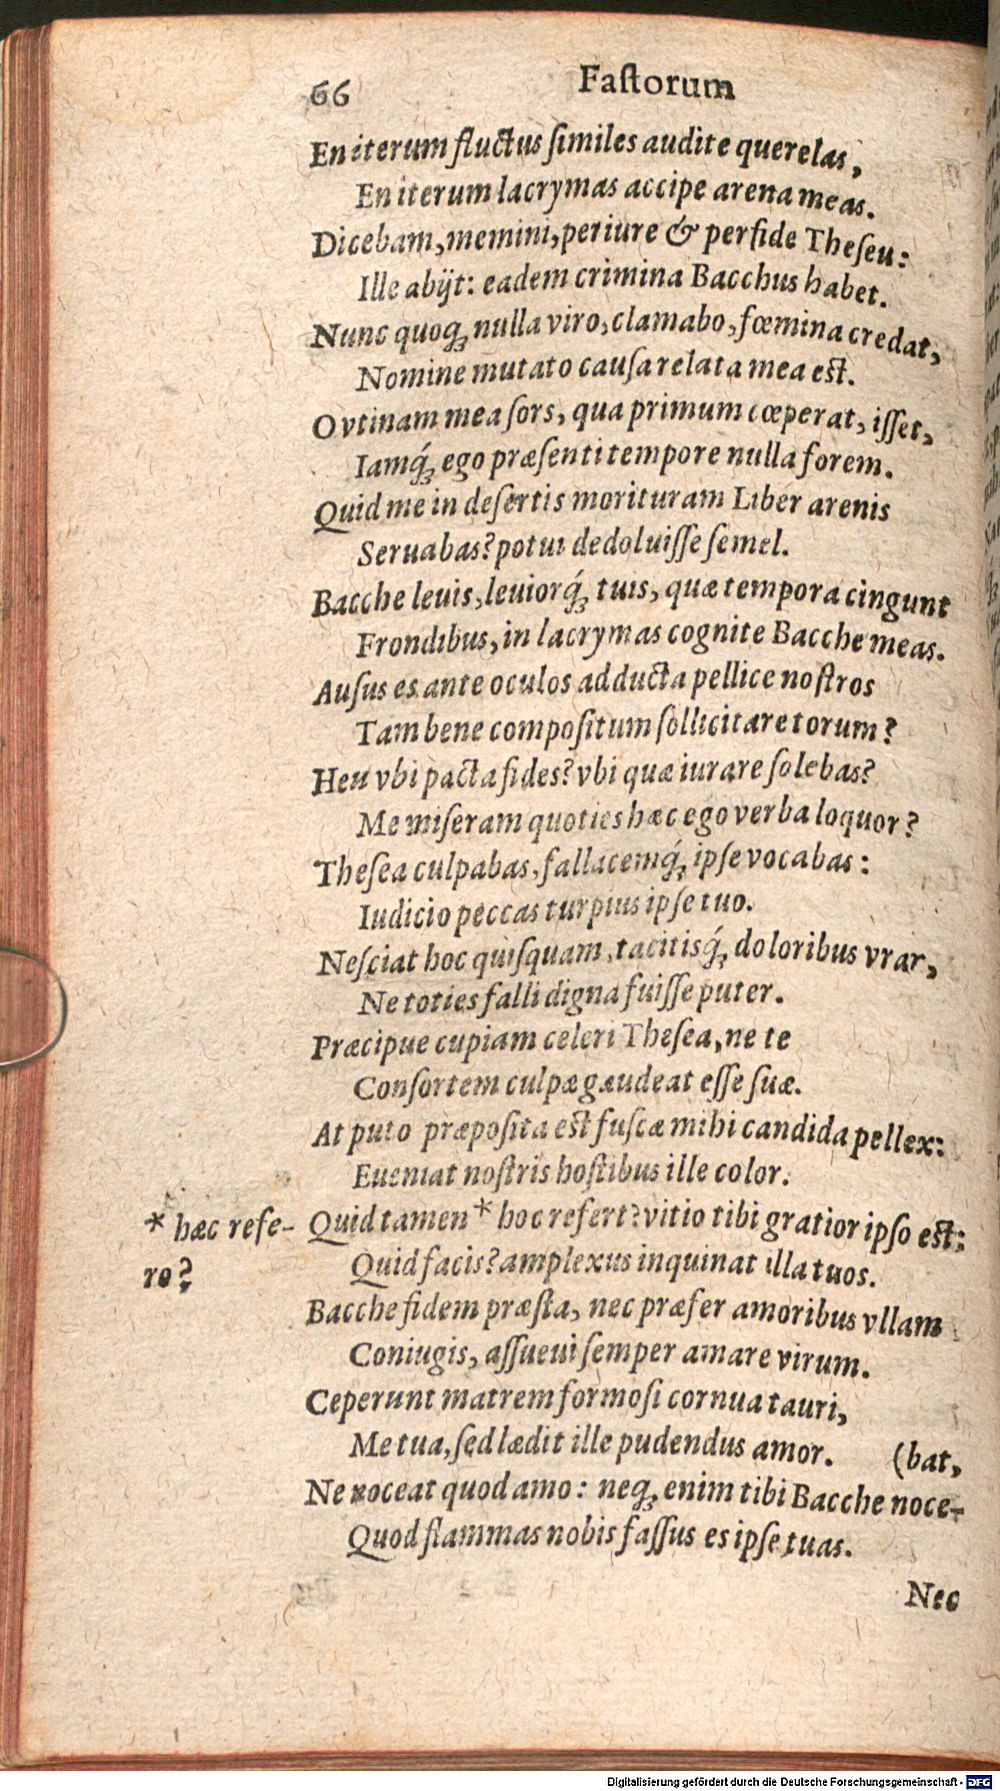 66 Faſtorum
En iterum fluctus ſimiles audite querelas,
En iterum lacrymas accipe arena meas.
Dicebam, memini, periure & perfide Theſeu:
Ille abijt: eadem crimina Bacchus habet.
Nunc quoq; nulla viro, clamabo, fœmina credat,
Nomine mutato cauſa relata mea eſt.
O vtinam mea ſors, qua primum cœperat, iſſet,
Iamq́; ego præſenti tempore nulla forem.
Quid me in deſertis morituram Liber arenis
Seruabas? potui dedoluiſſe ſemel.
Bacche leuis, leuiorq́; tuis, quæ tempora cingunt
Frondibus, in lacrymas cognite Bacche meas.
Auſus es ante oculos adducta pellice noſtros
Tam bene compoſitum ſollicitare torum?
Heu vbi pacta fides? vbi quæ iurare ſolebas?
Me miſeram quoties hæc ego verba loquor?
Theſea culpabas, fallacemq́; ipſe vocabas:
Iudicio peccas turpius ipſe tuo.
Neſciat hoc quiſquam, tacitisq́; doloribus vrar,
Ne toties falli digna fuiſſe puter.
Præcipue cupiam celeri Theſea, ne te
Conſortem culpæ gaudeat eſſe ſuæ.
At puto præpoſita eſt fuſcæ mihi candida pellex:
Eueniat noſtris hoſtibus ille color.
* hæc refe-
ro?
Quid tamen * hoc refert? vitio tibi gratior ipſo eſt:
Quid facis? amplexus inquinat illa tuos.
Bacche fidem præſta, nec præfer amoribus vllam
Coniugis, aſſueui ſemper amare virum.
Ceperunt matrem formoſi cornua tauri,
Me tua, ſed lædit ille pudendus amor. (bat,
Ne noceat quod amo: neq; enim tibi Bacche noce-
Quod flammas nobis faſſus es ipſe tuas.
Nec